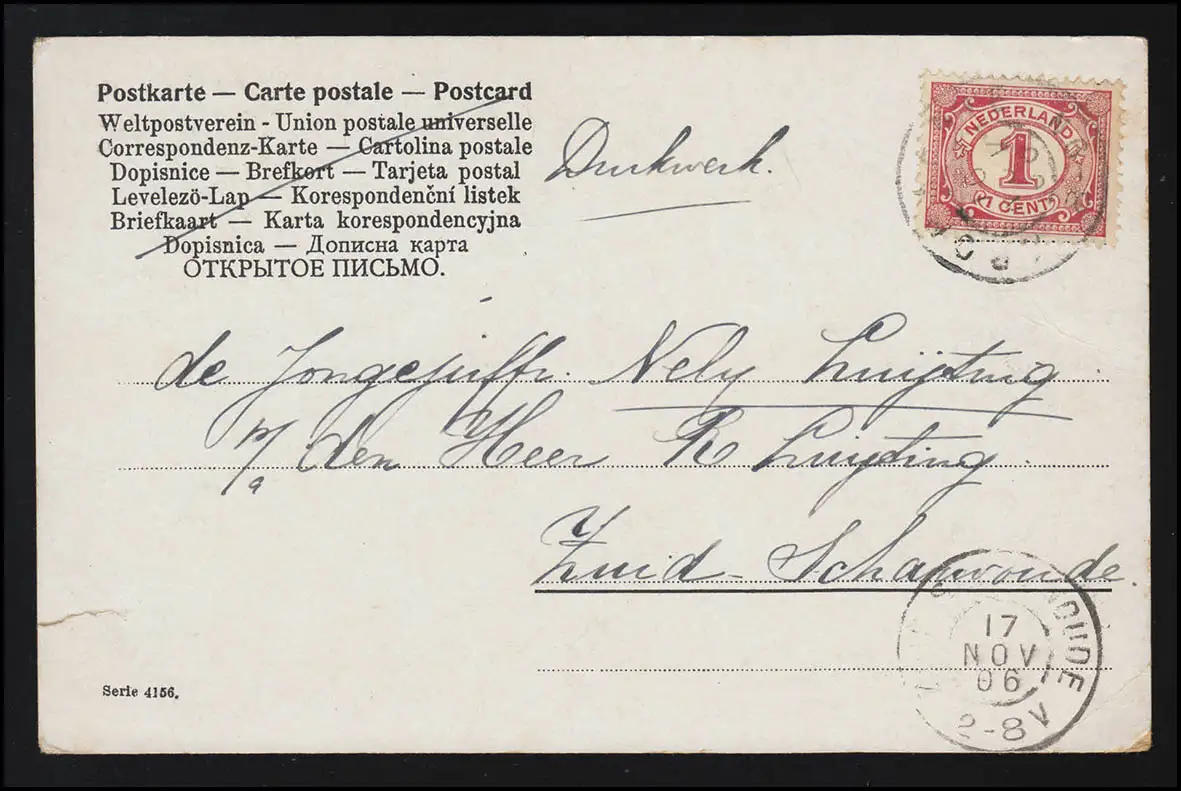 Postkarte — Carte postale — Postcard
Weltpostverein - Union postale universelle
Correspondenz-Karte — Cartolina postale
Dopisnice — Brefkort — Tarjeta postal
Levelezö-Lap — Korespondenční listek
Briefkaart — Karta korespondencyjna
Dopisnica — Дописна карта
ОТКРЫТОЕ ПИСЬМО.
Drukwerk.
NEDERLAND
1
1 CENT
de Jongejuffr. Nely Luijting
p/a den Heer R Luijting.
Zuid-Scharwoude.
17
NOV
06
2-8V
Serie 4156.